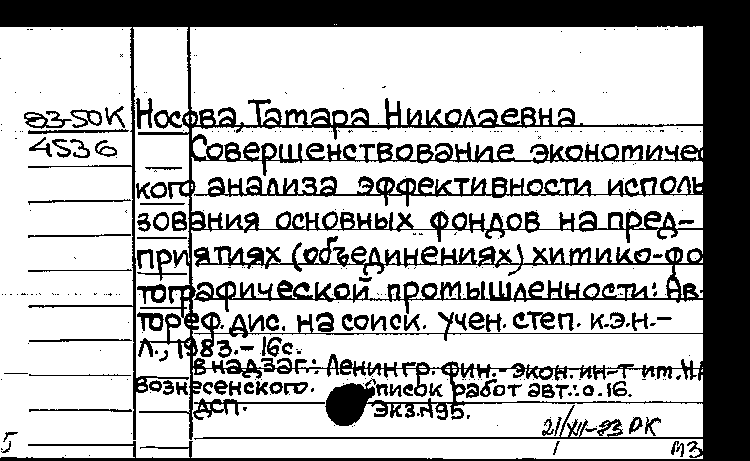 83-50К Носова, Тамара Николаевна.
4536 Совершенствование экономичес
кого анализа эффективности исполь
зования основных фондов на пред-
приятиях (объединениях) химико-фо
тографической промышленности: Ав-
тореф. дис. на соиск. учен. степ. к.э.н.-
Л., 1983.- 16с.
В надзаг.: Ленингр. фин.-экон. ин-т им. Н.А
Вознесенского. Список работ авт.: с.16.
ДСП. Экз.№95.
21/XII-83 РК
5 МЗ